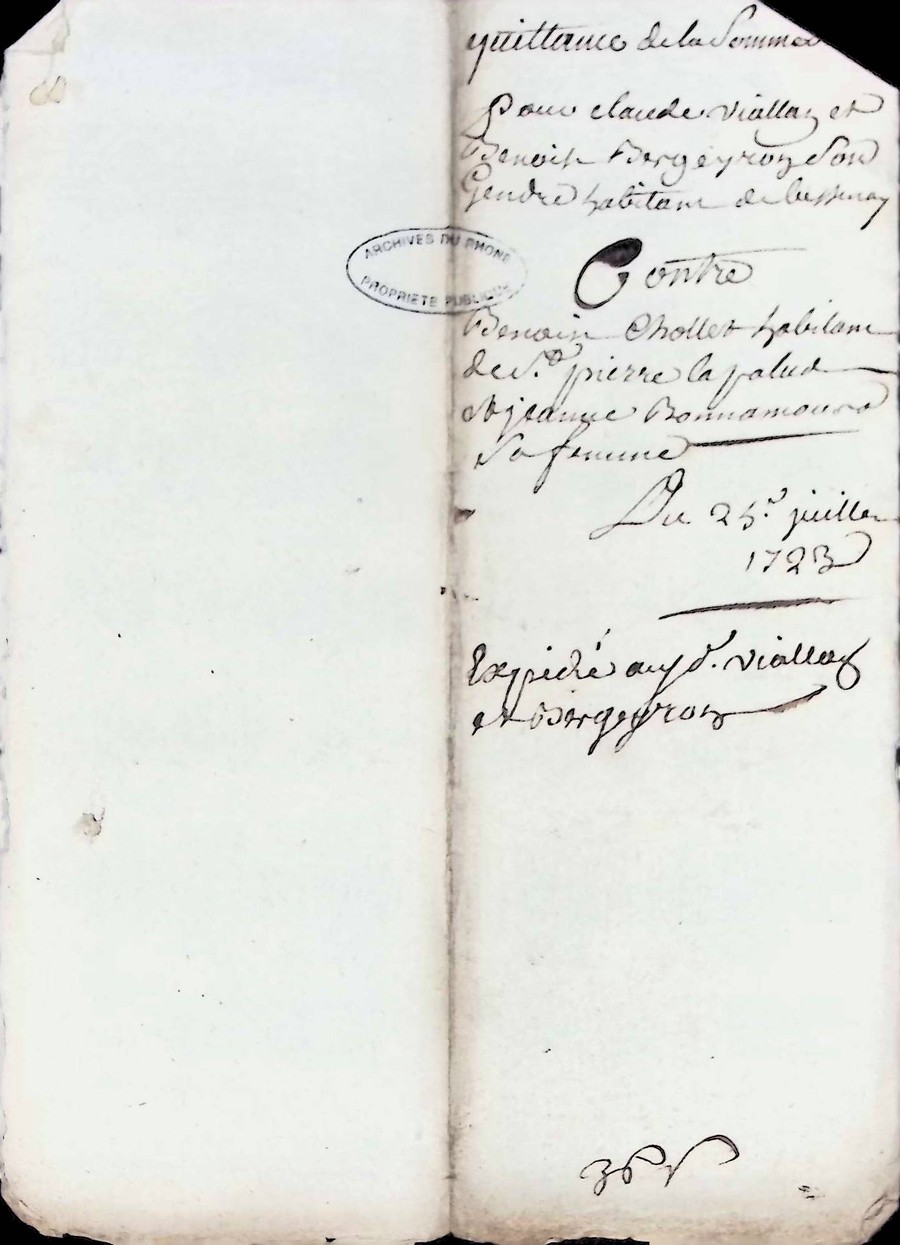 quittance de la Somme
Pour claude Viallay et
Benoist Bergeyron Son
Gendre habitant de bessenay
ARCHIVES DU RHONE
PROPRIETE PUBLIQUE
Contre
Benoist Chollet habitant
de St. pierre la palud
et jeanne Bonnamour
Sa femme
Du 25e juillet
1723
Expedié auxd. Viallay
et Bergeyron